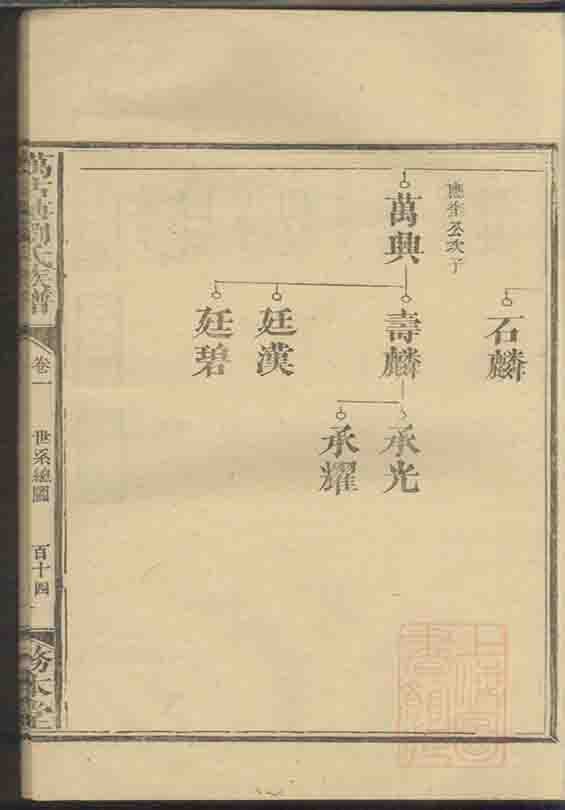 石麟
應奎公次子
萬典
壽麟
廷漢
廷碧
承光
承耀
劉氏族譜
卷一
世系總圖
百十四
務本堂
上海圖書館藏